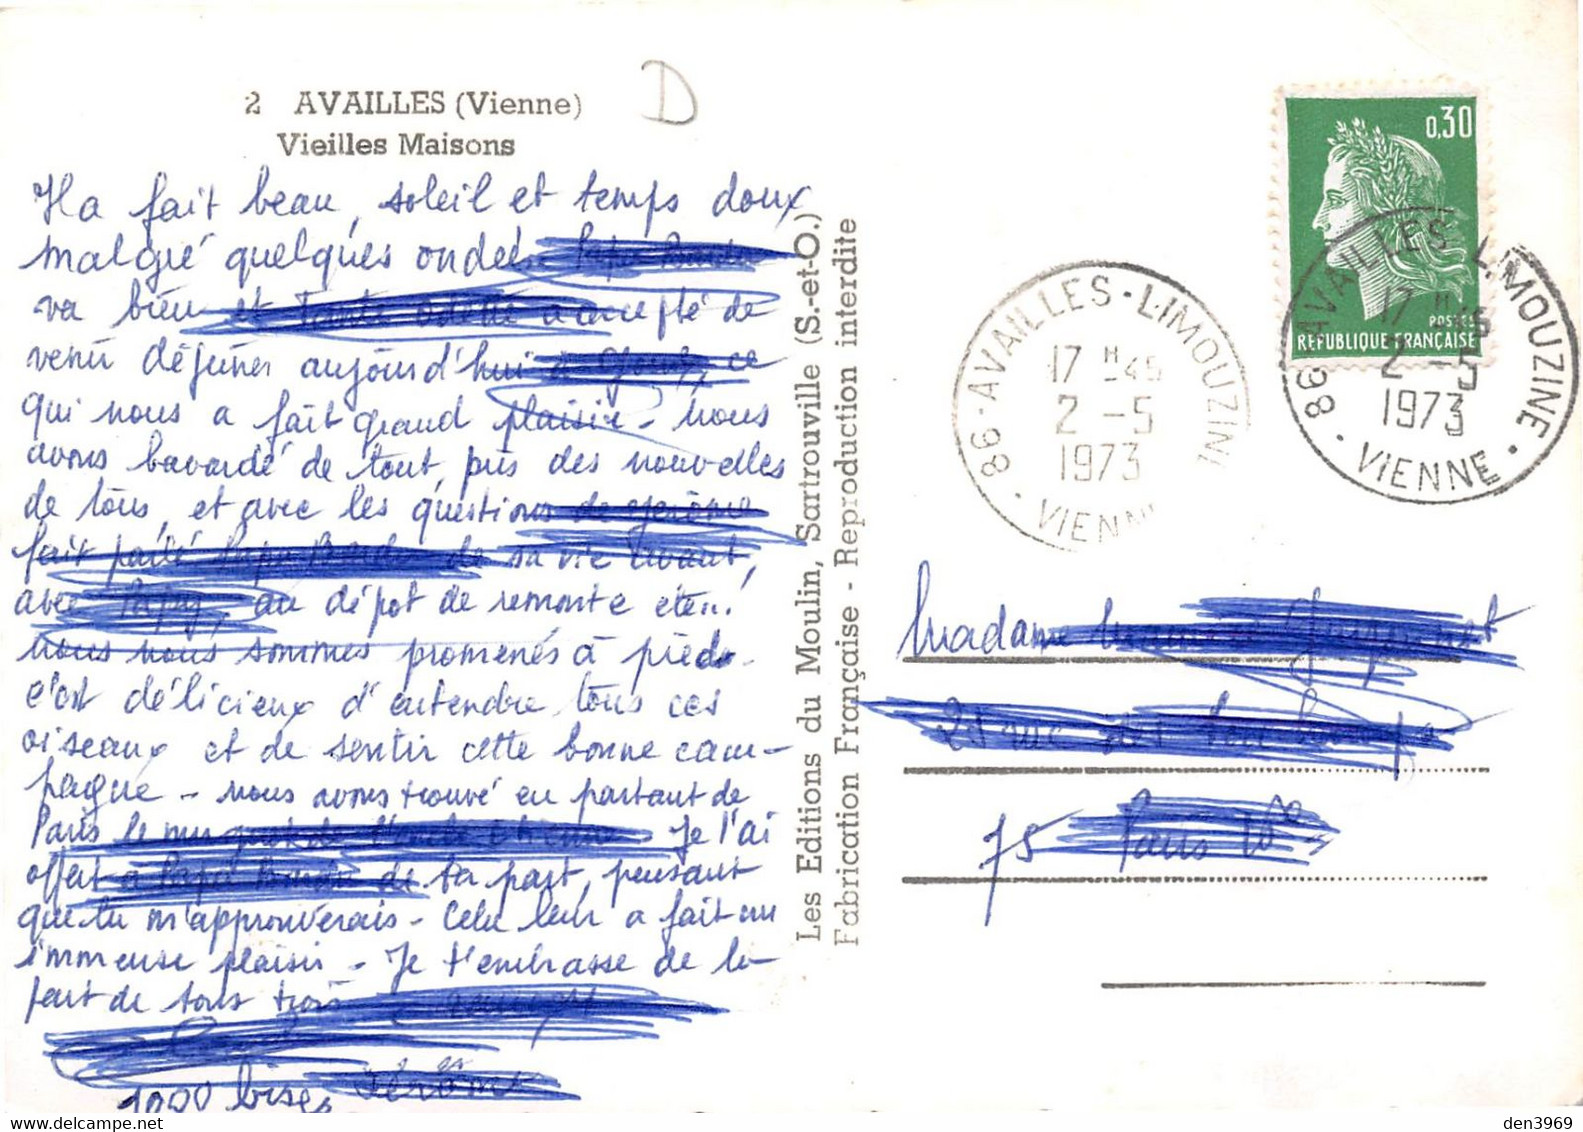 2 AVAILLES (Vienne)
Vieilles Maisons
D
Il a fait beau, soleil et temps doux
malgré quelques ondées
va bien et tante odette a accepté de
venir déjeuner aujourd'hui à ce
qui nous a fait grand plaisir - nous
avons bavardé de tout, pris des nouvelles
de tous, et avec les questions de Jérôme
fait parlé de sa vie avant,
avec Papy, au dépot de remonte
nous nous sommes promenés à pieds.
c'est délicieux d'entendre tous ces
oiseaux et de sentir cette bonne cam-
pagne - nous avons trouvé en partant de
Paris le muguet de Je l'ai
offert à Papa de ta part, pensant
que tu m'approuverais - Cela leur a fait un
immense plaisir - Je t'embrasse de la
part de tous trois
1000 bises Jérôme
Les Editions du Moulin, Sartrouville (S.-et-O.)
Fabrication Française - Reproduction interdite
0,30
POSTES
REPUBLIQUE FRANÇAISE
86 - AVAILLES - LIMOUZINE
17 H -45
2 -5
1973
• VIENNE
86 AVAILLES - LIMOUZINE
17 H 45
2 -5
1973
• VIENNE •
Madame
21 rue des
75 Paris
den3969